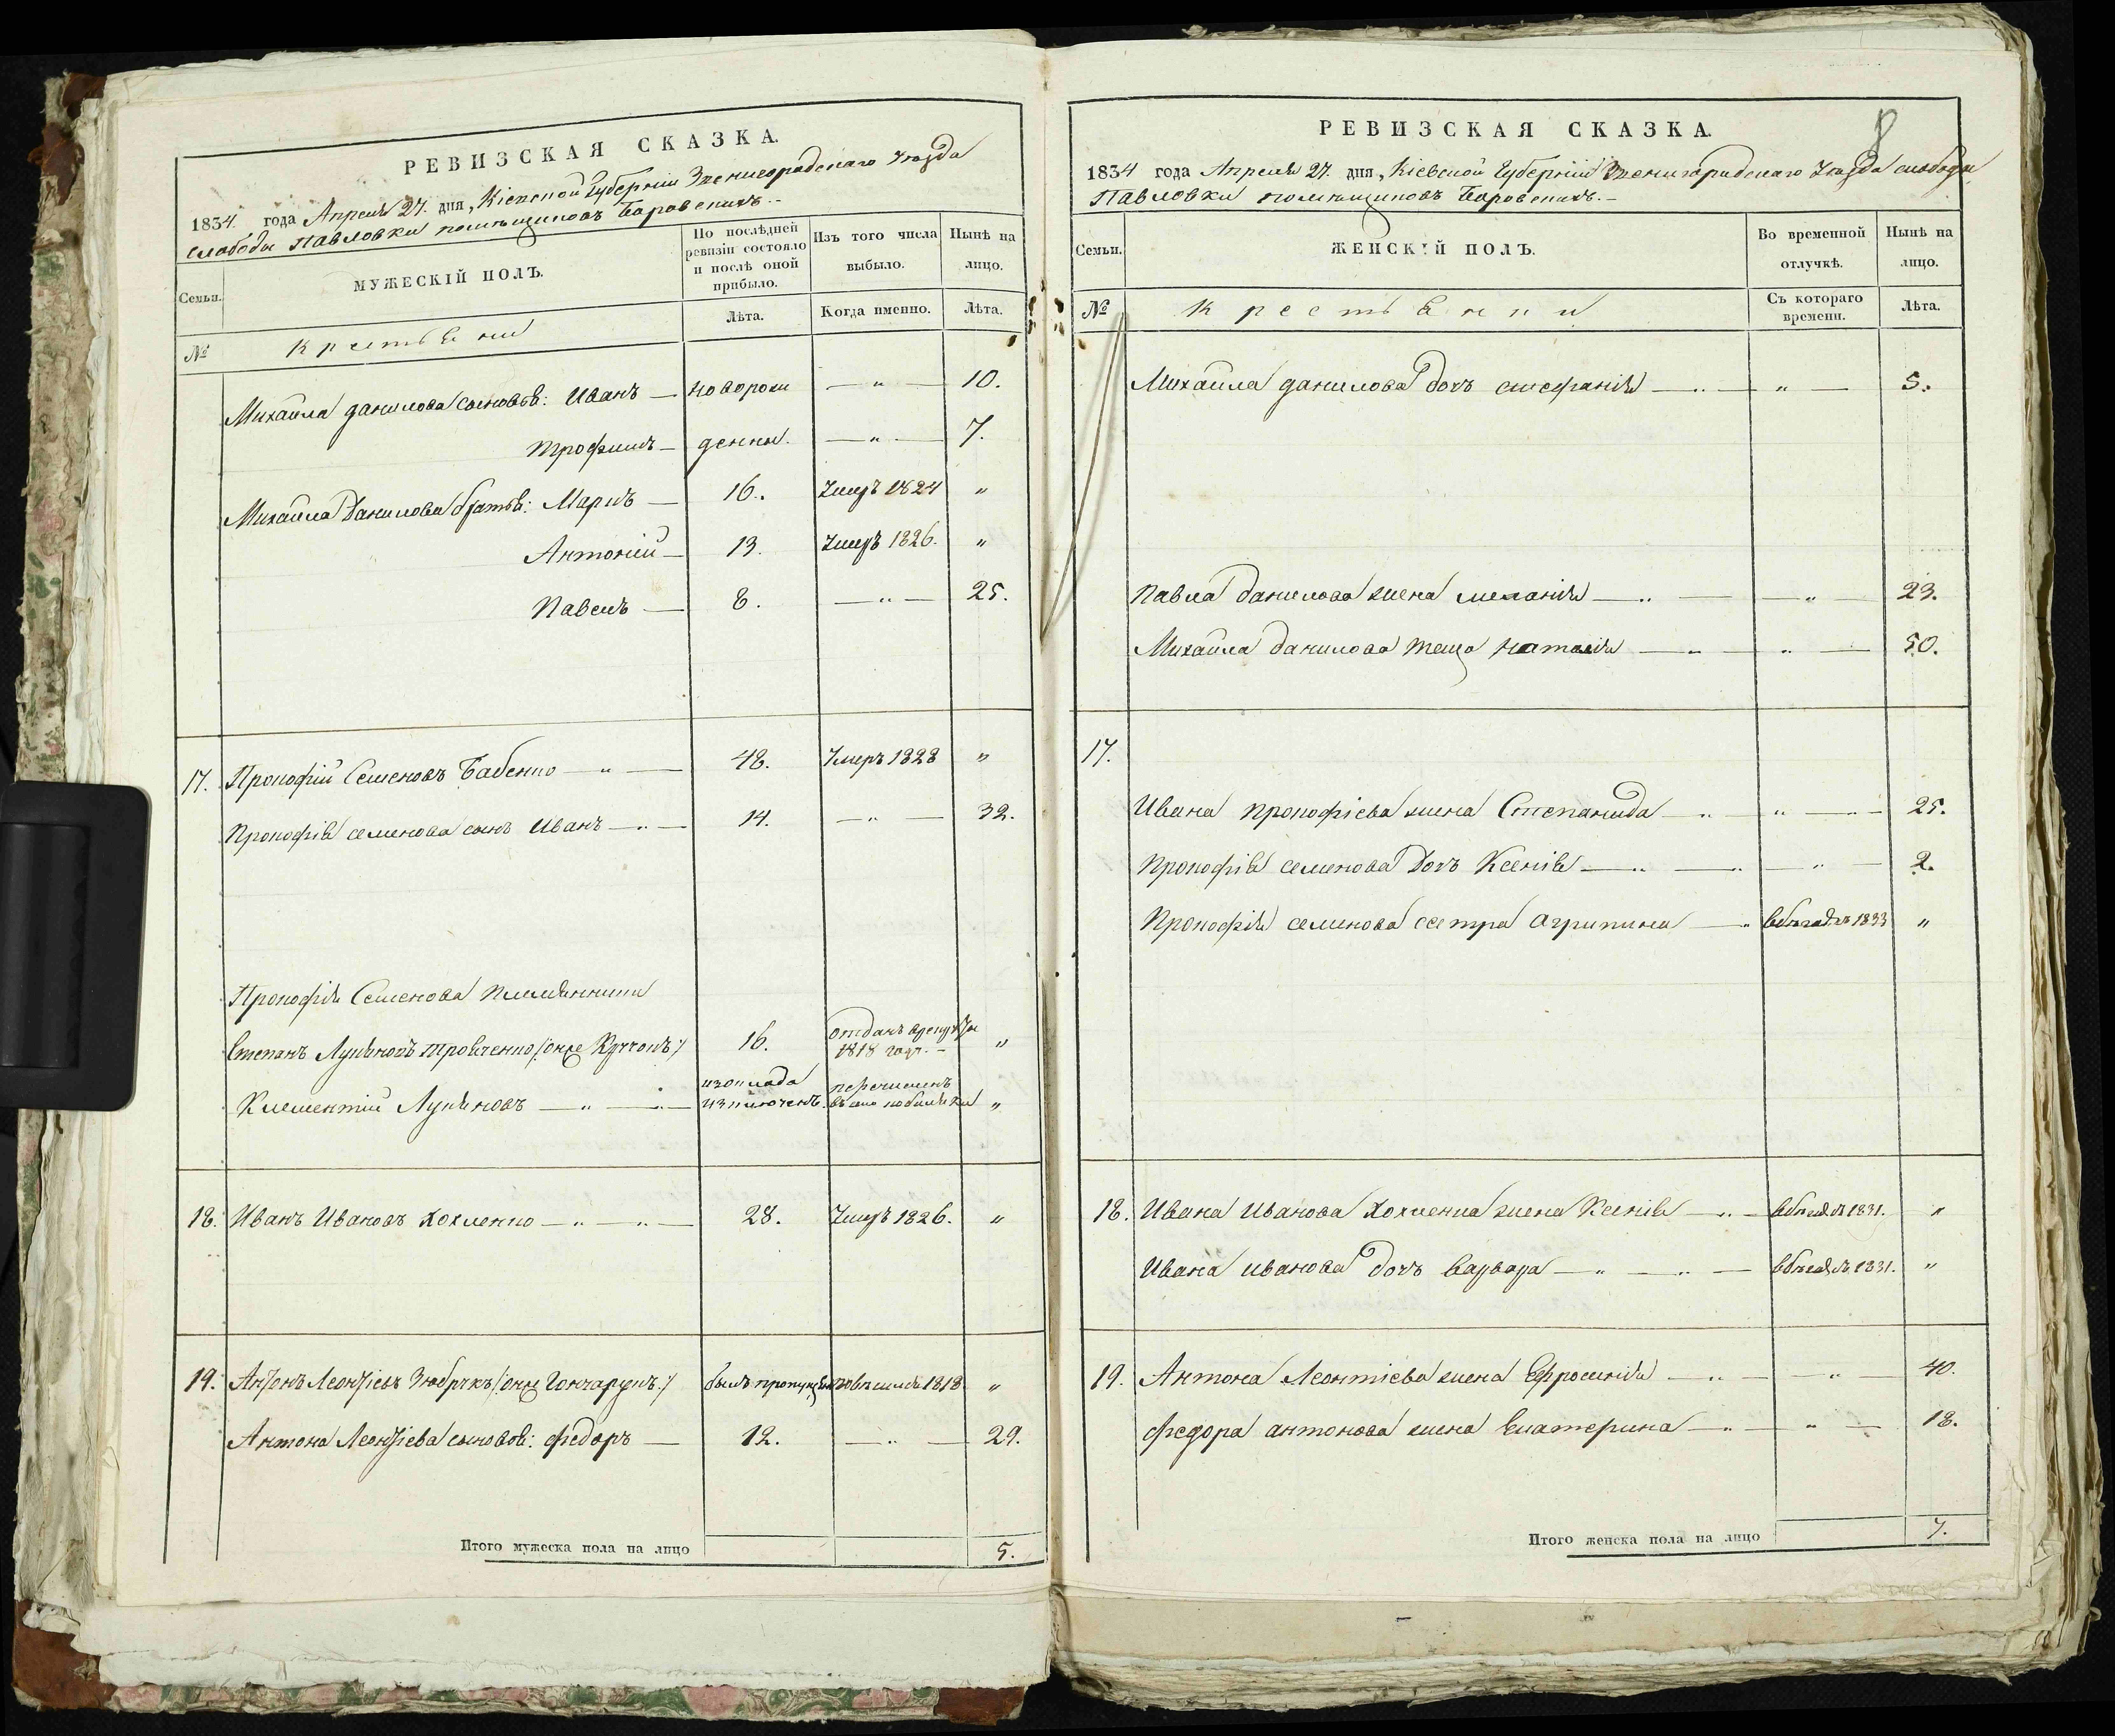 РЕВИЗСКАЯ СКАЗКА.
1834 года Апреля 27. дня, Кіевской Губерніи Звенигородскаго Уезда
слободы Павловки помѣщиковъ Боровскихъ.-
Семьи.
МУЖЕСКІЙ ПОЛЪ.
По послѣдней ревизіи состояло и послѣ оной прибыло.
Изъ того числа выбыло.
Нынѣ на лицо.
№
Крестьяни
Лѣта.
Когда именно.
Лѣта.
Михайла данилова сыновья: Иванъ — новорож — " — 10.
трофимъ — денны. — " — 7.
Михайла Данилова братья: Маркъ — 16. Умеръ 1824 "
Антоній — 13. Умеръ 1826. "
Павелъ — 8. — " — 25.
17. Прокофій Семеновъ Бабенко — " — 48. Умеръ 1828 "
Прокофія семенова сынъ Иванъ — " — 14. — " — 32.
Прокофія Семенова племянники
Степанъ Лукяновъ 16. отданъ 1818 году. — "
Климентій Лукяновъ — " — " — изоклада исключенъ. перечисленъ "
18. Иванъ Ивановъ Хохленко — " — " — 28. Умеръ 1826. "
19. Антонъ Леонтіевъ /: онже Гончарукъ :/ былъ пропущенъ 1818 "
Антона Леонтіева сыновья: федоръ — 12. — " — 29.
Итого мужеска пола на лицо 5.
РЕВИЗСКАЯ СКАЗКА.
8
1834 года Апреля 27. дня, Кіевской Губерніи Звенигородскаго Уезда слободы
Павловки помѣщиковъ Боровскихъ.-
Семьи.
ЖЕНСКІЙ ПОЛЪ.
Во временной отлучкѣ.
Нынѣ на лицо.
№
Крестьянки
Съ котораго времени.
Лѣта.
Михайла данилова дочь стефанія — " — " — 5.
Павла данилова жена меланія — " — " — 23.
Михайла данилова теща наталія — " — " — 50.
17.
Ивана прокофіева жена Степанида — " — " — " — 25.
Прокофія семенова дочь Ксенія — " — " — " — 2.
Прокофія семенова сестра агрипина — " вбѣгахъ 1833 "
18. Ивана Иванова Хохленка жена Ксенія — " — вбѣгахъ 1831. "
Ивана иванова дочь варвара — " — " — вбѣгахъ 1831. "
19. Антона Леонтіева жена Ефросинія — " — " — 40.
федора антонова жена Екатерина — " — " — 18.
Итого женска пола на лицо 7.